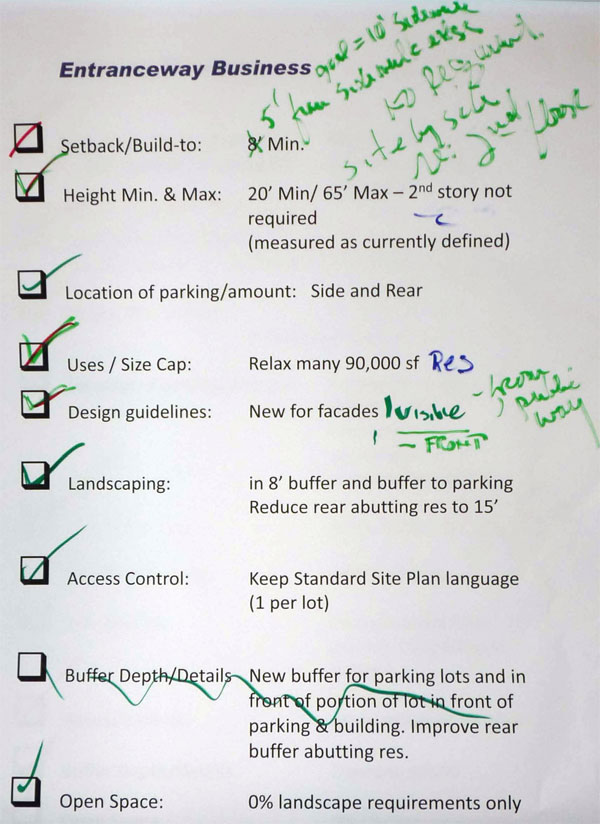 goal = 10' sidewalk
Entranceway Business
5' from sidewalk edge
No Requirement.
site by site
re: 2nd floor
Setback/Build-to: 8' Min.
Height Min. & Max: 20' Min/ 65' Max – 2nd story not
required
(measured as currently defined)
Location of parking/amount: Side and Rear
Uses / Size Cap: Relax many 90,000 sf Res
Design guidelines: New for facades visible - from
public
way
- FRONT
Landscaping: in 8' buffer and buffer to parking
Reduce rear abutting res to 15'
Access Control: Keep Standard Site Plan language
(1 per lot)
Buffer Depth/Details New buffer for parking lots and in
front of portion of lot in front of
parking & building. Improve rear
buffer abutting res.
Open Space: 0% landscape requirements only